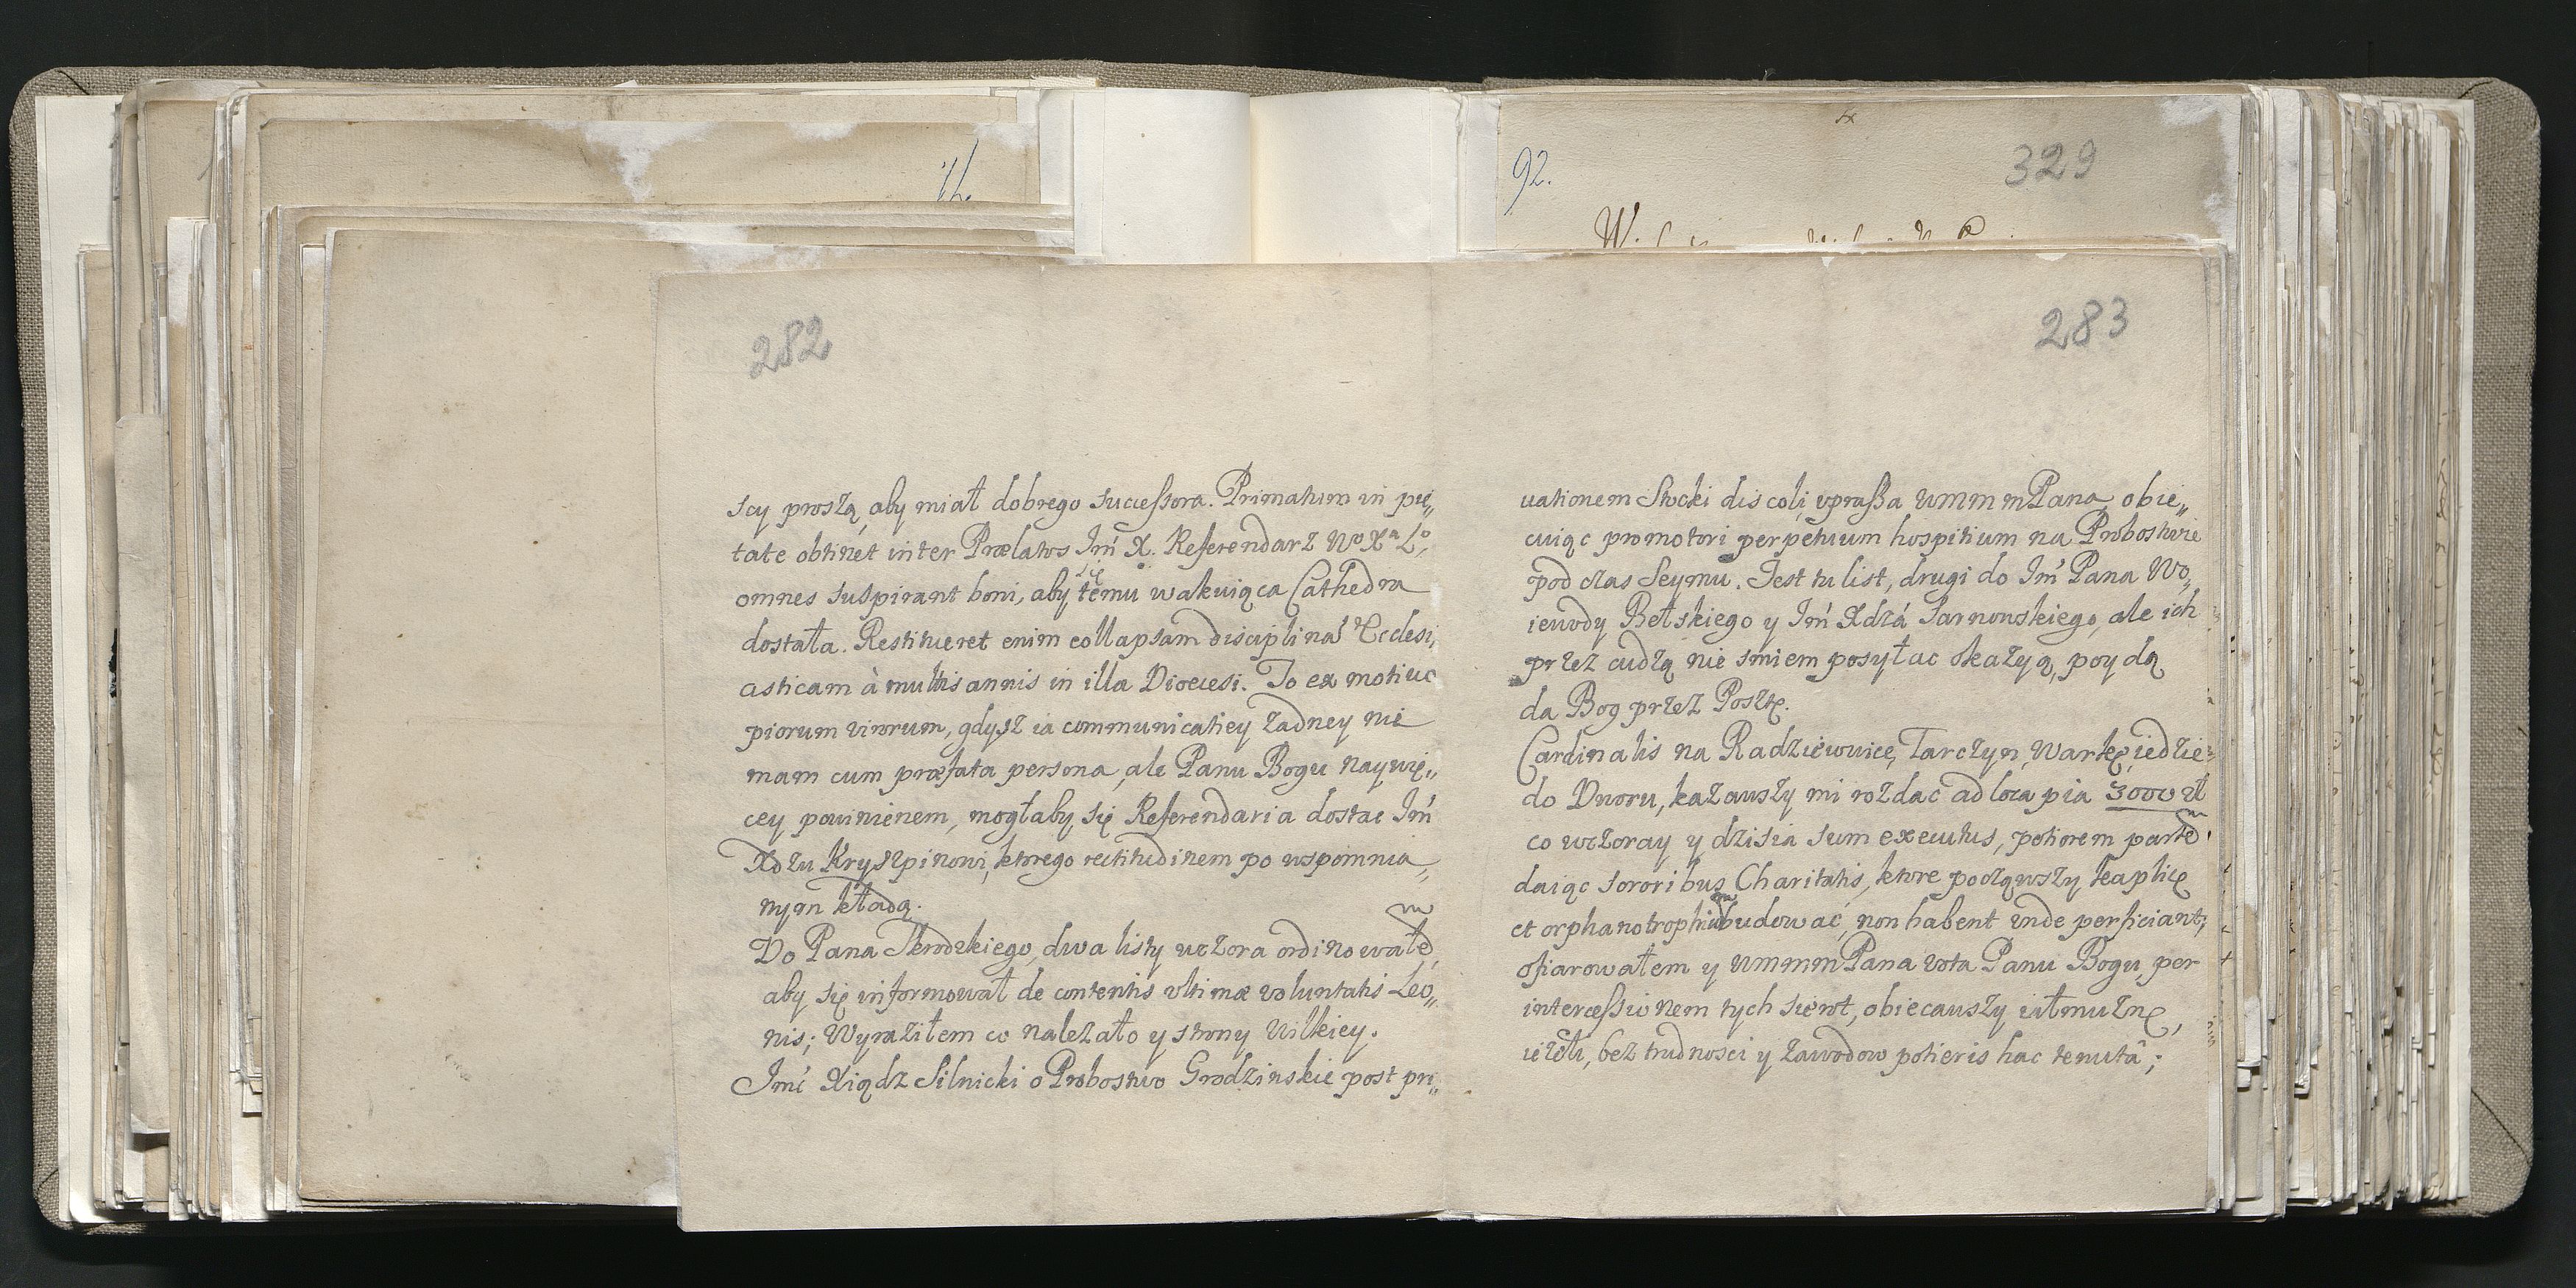 92.
329
282
scy proszą, aby miał dobrego successora. Primatum in pie„
tate obtinet inter Prælatos Jm̃ X. Referendarz Wo Xa Lo,
omnes suspirant boni, aby się temu wakuiąca Cathedra
dostała. Restitueret enim collapsam disciplinã Ecclesi„
asticam à multis annis in illa Dioecesi. To ex motivo
piorum virorum, gdysz ia communicatiey żadney nie
mam cum præfata persona, ale Panu Bogu naywię„
cey powinienem, mogłaby się Referendaria dostac Jm̃
Xdzu Kryszpinowi, ktorego rectitudinem po wspomnia„
nym kładą.
Do Pana Skrodzkiego, dwa listy wczora ordinowałẽ,
aby się informował de contentis ultimæ voluntatis Leo„
nis; Wyraziłem co należało y strony Wilkiey.
Jmć Xiądz Silnicki o Probostwo Grodzinskie post pri„
283
uationem Stocki discoli, uprasza WMMMPana, obie„
cuiąc promotori perpetuum hospitium na Probostwie
pod czas Seymu. Jest tu list, drugi do Jm̃ Pana Wo„
iewody Bełskiego y Jm̃ Xdza Tarnowskiego, ale ich
przez cudzą nie smiem posyłac okazyą, poydą
da Bog przez Posztę.
Cardinalis na Radziewice, Tarczyn, Warkę, iedzie
do Dworu, kazawszy mi rozdać ad loca pia 3000 zł
co wczoray y dzisia sum executus, potiorem partẽ
daiąc sororibus Charitatis, ktore począwszy kaplicę
et orphanotrophiũ budować, non habent unde perficiant;
ofiarowałem y WMMMPana vota Panu Bogu, per
intercessionem tych sierot, obiecawszy iałmużnę,
ieżeli, bez trudnosci y zawodow potieris hac tenutâ;